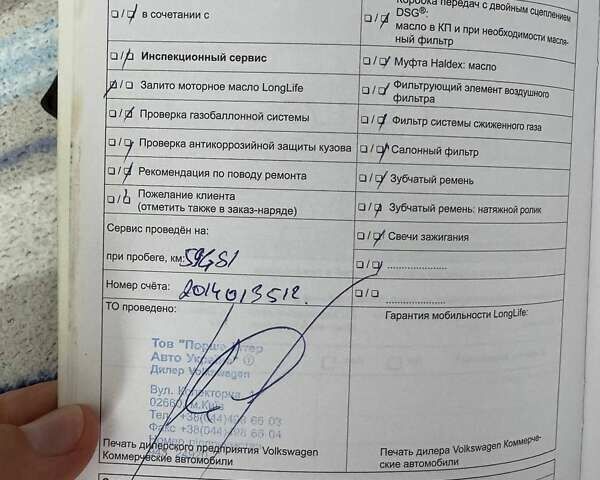 ❑/❑ в сочетании с
❑/❑ Инспекционный сервис
❑/❑ Залито моторное масло LongLife
❑/❑ Проверка газобаллонной системы
❑/❑ Проверка антикоррозийной защиты кузова
❑/❑ Рекомендация по поводу ремонта
❑/❑ Пожелание клиента
(отметить также в заказ-наряде)
Сервис проведён на:
при пробеге, км:
Номер счёта: 2014013512.
ТО проведено:
Тов "Порше Інтер
Авто Україна"
Дилер Volkswagen
Вул.
02660 м.Київ
Тел. +38(044)498 66 03
Факс +38(044)498 66 04
Печать дилерского предприятия Volkswagen
Коммерческие автомобили
Коробка передач с двойным сцеплением
DSG®:
масло в КП и при необходимости масля-
ный фильтр
❑/❑ Муфта Haldex: масло
❑/❑ Фильтрующий элемент воздушного
фильтра
❑/❑ Фильтр системы сжиженного газа
❑/❑ Салонный фильтр
❑/❑ Зубчатый ремень
❑/❑ Зубчатый ремень: натяжной ролик
❑/❑ Свечи зажигания
❑/❑ ....................
❑/❑ ....................
Гарантия мобильности LongLife:
Печать дилера Volkswagen Коммерче-
ские автомобили